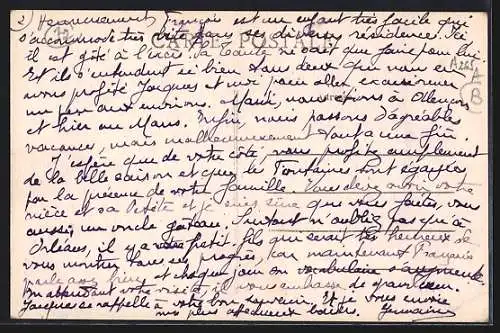 2) Heureusement François est un enfant très facile qui
s'accommode très vite dans ses diverses résidences. Ici
CARTE POSTALE
il est gâté à l'excès. Sa Tante ne sait que faire pour lui
Et ils s'entendent si bien tous deux que nous en
avons profité Jacques et moi pour aller excursionner
un peu aux environs. Mardi, nous étions à Alençon
et hier au Mans. Enfin, nous passons d'agréables
vacances, mais malheureusement tout a une fin.
J'espère que de votre côté, vous profitez amplement
de la belle saison et que les Fontaines sont égayées
par la présence de votre famille. Vous devez avoir votre
nièce et sa petite et je suis sûre que vous faites, vous
aussi, un oncle gâteau. Surtout n'oubliez pas qu'à
Orléans, il y a votre petit fils qui serait très heureux de
vous montrer tous ses progrès, car maintenant François
parle sans et chaque jour son vocabulaire s'augmente.
En attendant votre visite, il vous embrasse de grand cœur.
Jacques se rappelle à votre bon souvenir. Et je vous envoie
mes plus affectueux baisers. Germaine
A265
A
B